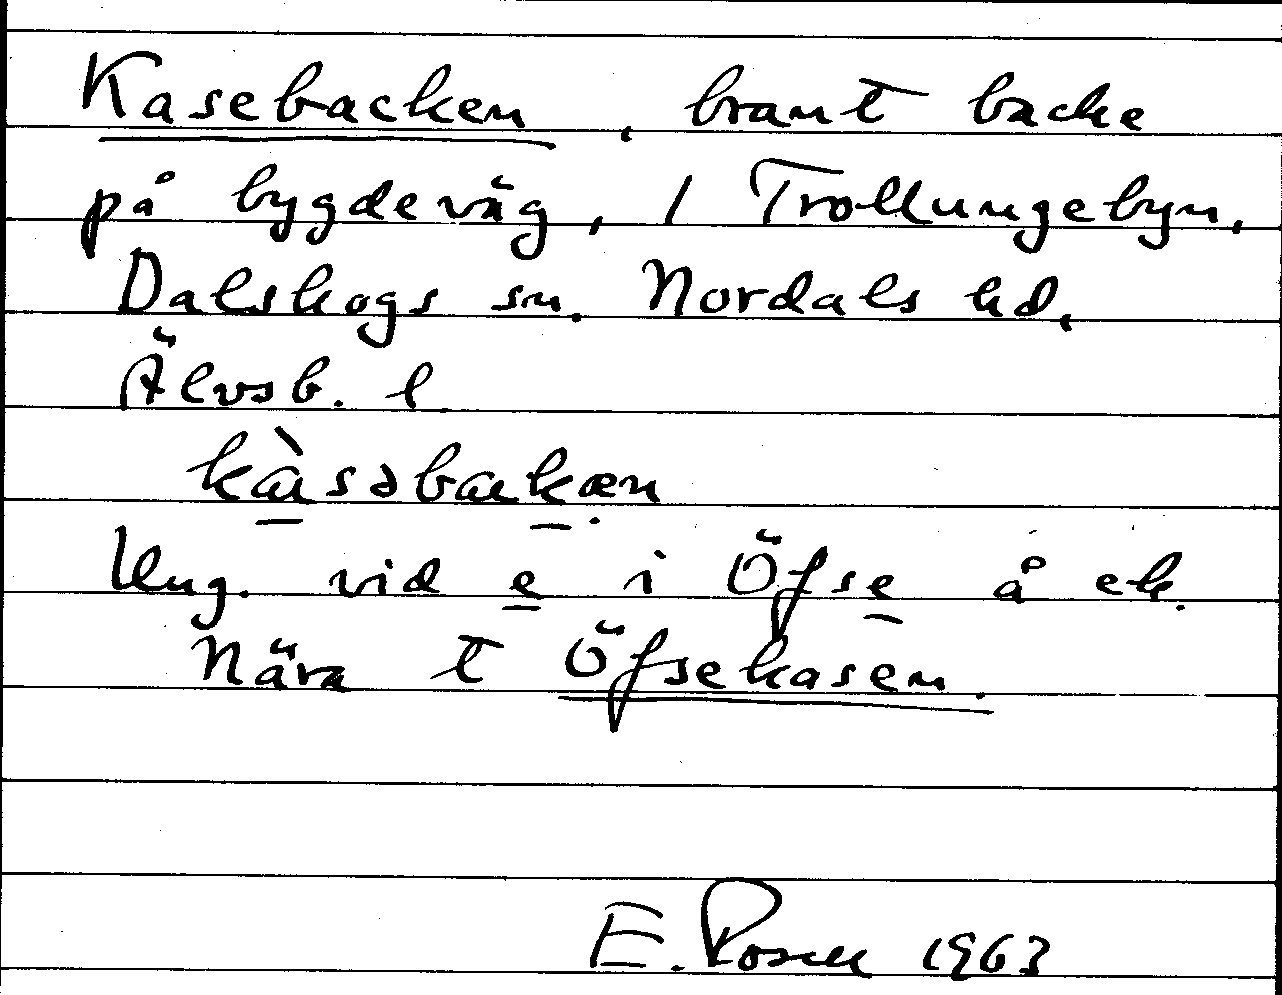 Kasebacken, brant backe
på bygdeväg, i Trollungebyn,
Dalskogs sn. Nordals hd,
Älvsb. l
kàsəbakæn
Ung. vid e i Öfse å ek.
Nära t Öfsekasen.
E. Rosell 1963